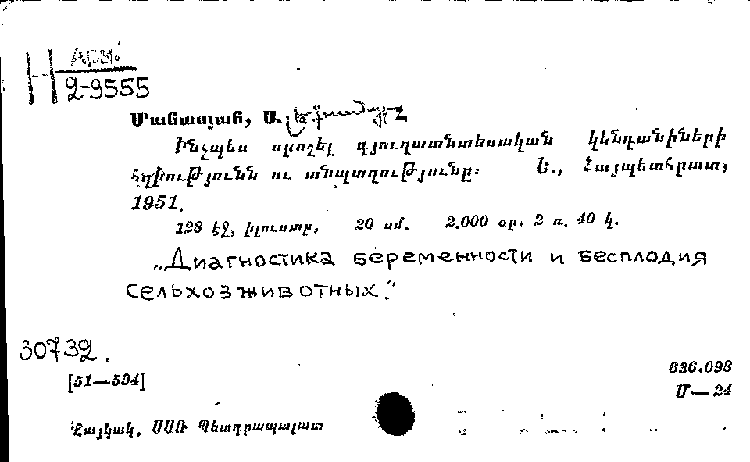 Н Арм.
2-9555
Մանասյան, Ա.
Ինչպես որոշել գյուղատնտեսական կենդանիների
հղիությունն ու անպտղությունը։ Ե., Հայպետհրատ,
1951.
128 էջ, իլյուստր, 20 սմ. 2.000 օր. 2 ռ. 40 կ.
„Диагностика беременности и бесплодия
сельхозживотных."
30732.
[51—594]
636.098
Մ—24
Հայկակ. ՍՍՌ Պետգրապալատ